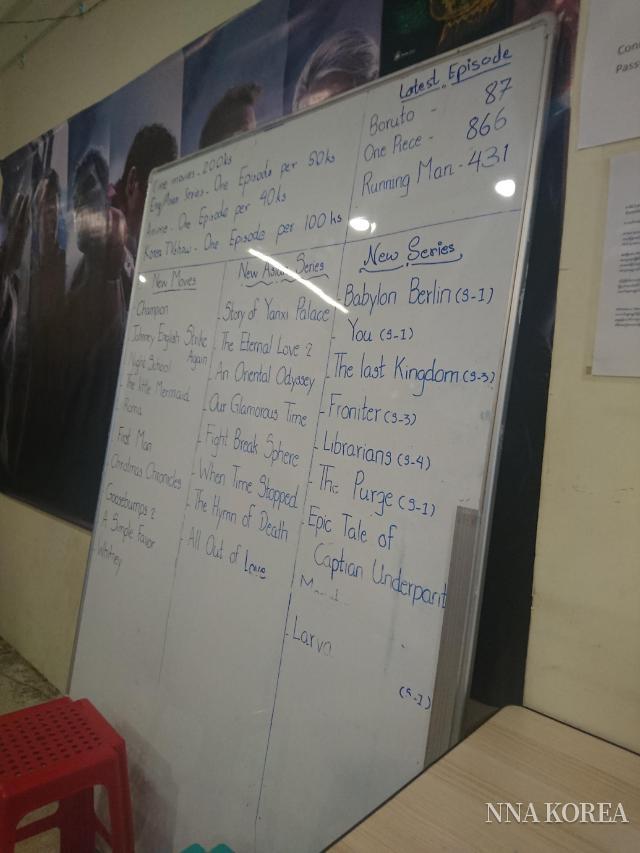 movies - 200ks
Eng Movie Series - One Episode per 50ks
Anime - One Episode per 40ks
Korea TVshow - One Episode per 100 ks
Latest Episode
Boruto - 87
One Piece - 866
Running Man - 431
New Movies
Champion
Johnny English Strike
Again
Night School
The little Mermaid
Roma
First Man
Christmas Chronicles
Goosebumps 2
A Simple Favor
Whitney
New Asian Series
Story of Yanxi Palace
The Eternal Love 2
An Oriental Odyssey
Our Glamorous Time
Fight Break Sphere
When Time Stopped
The Hymn of Death
All Out of Love
New Series
Babylon Berlin (S-1)
You (S-1)
The last Kingdom (S-3)
Froniter (S-3)
Librarians (S-4)
The Purge (S-1)
Epic Tale of
Captian Underpant
Larva
(S-1)
NNA KOREA